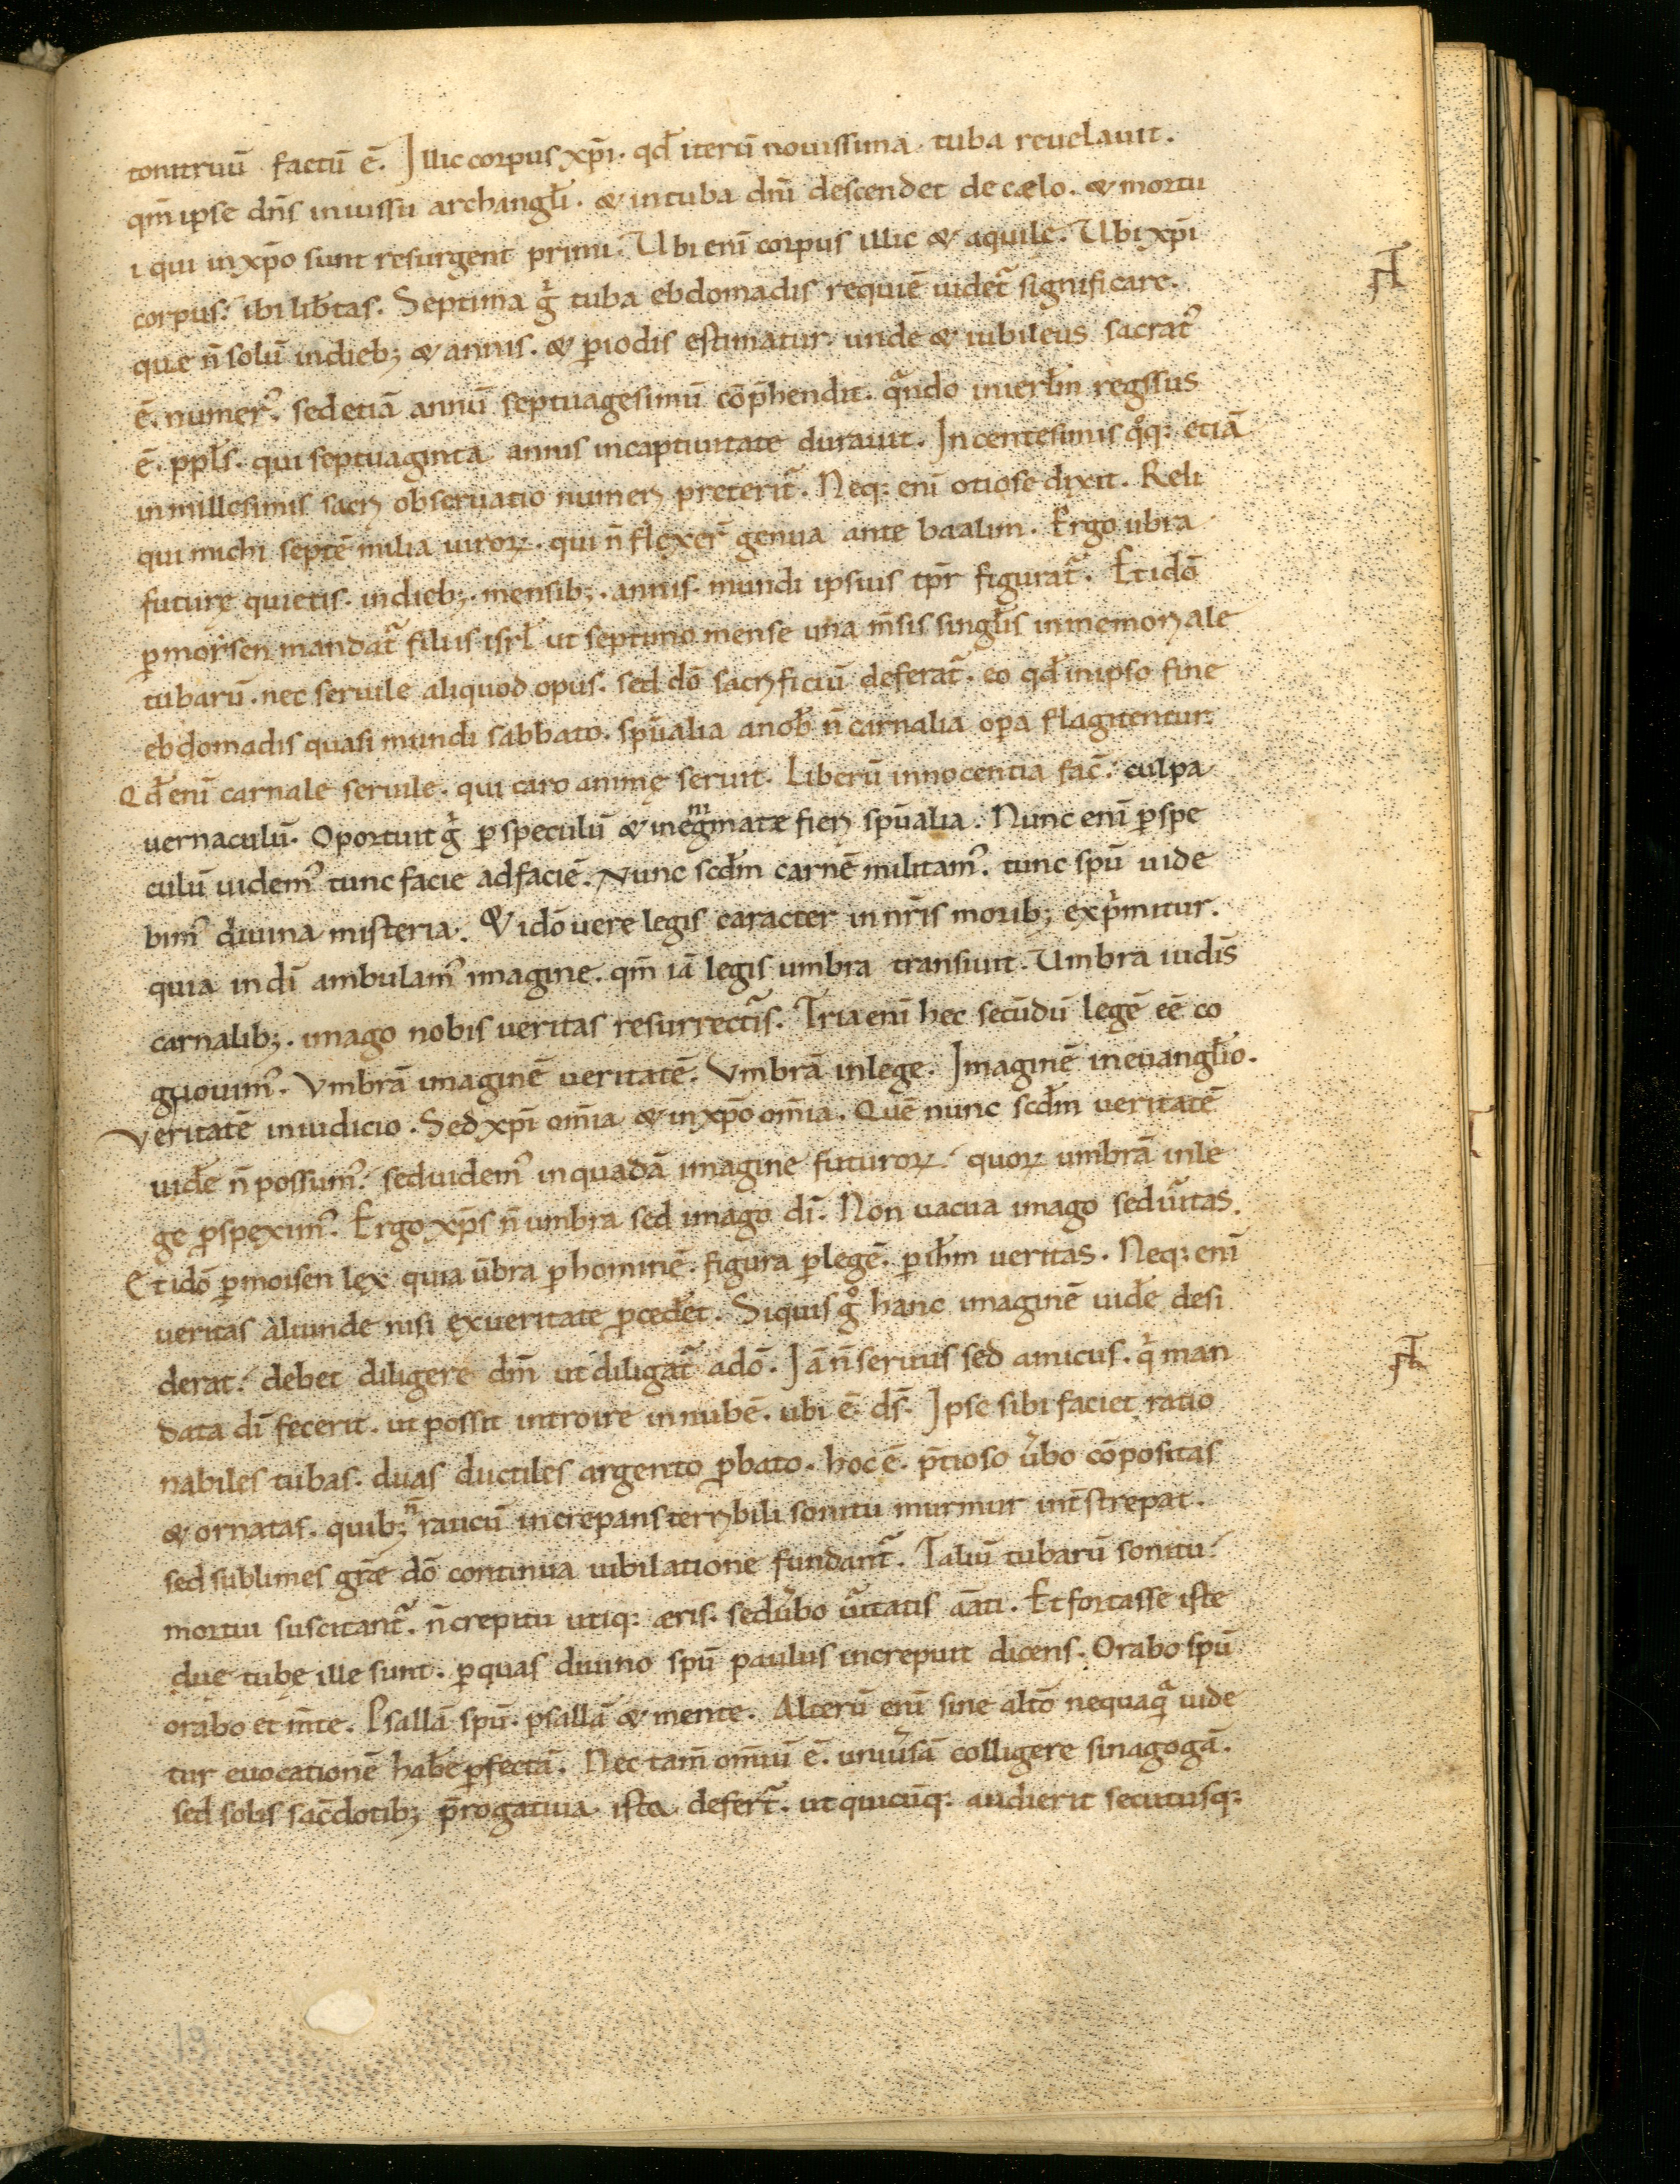 tonitruū factū ē. Illic corpus xp̄i. qđ iterū nouissima tuba reuelauit.
qm̄ ipse dn̄s in iussu archangłi. & in tuba dn̄i descendet de cælo. & mortu
i qui in xp̄o sunt resurgent primi. Ubi eni corpus illic & aquile. Ubi xp̄i
corpus: ibi libtas. Septima g̊ tuba ebdomadis requiē uidet᷑ significare.
que n̄ solū in dieb; & annis. & p̱iodis estimatur. unde & iubileus sacrat᷒
ē. numer᷒. sed etiā annū septuagesimū cōp̄hendit. q̄ndo in ierłm regssus
ē. ppłs. qui septuaginta annis in captiuitate durauit. In centesimis q̊q: etiā
in millesimis sacri obseruatio numeri preterit᷑. Neq: enī otiose dixit. Reli
qui michi septē milia uiroꝝ. qui n̄ flexer᷑ genua ante baalim. Ergo ūbra
futurę quietis. in dieb;. mensib;. annis. mundi ipsius tp̄r figurat᷑. Et idō
ꝑ moisen mandat᷑ filiis isrł ut septimo mense una m̄sis singłis in memoriale
tubarū. nec seruile aliquod opus. sed dō sacrificiū deferat᷑. eo qđ in ipso fine
ebdomadis quasi mundi sabbato. sp̄ualia a nob̄ n̄ carnalia opa flagitentur.
Qđ enī carnale seruile. qui caro animę seruit. Liberū innocentia fac̄: culpa
uernaculū. Oportuit g̊ ꝑ speculū & in egmmate fieri sp̄ualia. Nunc enī ꝑ spe
culū uidem᷒ tunc facie ad faciē. Nunc scđm carnē militam᷒. tunc spū uide
bim᷒ diuina misteria. & idō uere legis caracter in nr̄is morib; expͥmitur.
quia in dī ambulam᷒ imagine. qm̄ iā legis umbra transiuit. Umbra iudīs
carnalib;. imago nobis ueritas resurrectīs. Tria enī hec secūdū legē eē co
gnouim᷒. Vmbrā imaginē ueritatē. Vmbrā in lege. Imaginē in euangłio.
Veritatē in iudicio. Sed xp̄i om̄ia & in xp̄o om̄ia. Quē nunc scđm ueritatē
uiđe n̄ possum᷒. sed uidem᷒ in quadā imagine futuroꝝ: quoꝝ umbrā in le
ge ꝑspexim᷒. Ergo xp̄s n̄ umbra sed imago dī. Non uacua imago sed ūitas.
Et idō ꝑ moisen lex quia ūbra ꝑ hominē. figura ꝑ legē. ꝑ ih̄m ueritas. Neq: enī
ueritas aliunde nisi ex ueritate ꝓcedet. Siquis g̊ hanc imaginē uiđe desi
derat: debet diligere dm̄ ut diligat᷑ a dō. Iā n̄ seruus sed amicus. qͥ man
data dī fecerit. ut possit introire in nubē. ubi ē ds̄. Ipse sibi faciet ratio
nabiles tubas. duas ductiles argento ꝓbato. hoc ē. p̄tioso ūbo cōpositas
& ornatas. quib; n̄ raucū increpans terribili sonitu murmur int̄strepat.
sed sublimes gr̄æ dō continua iubilatione fundant᷑. Taliū tubarū sonitu:
mortui suscitant᷑. n̄ crepitu utiq: æris. sed ūbo ūitatis āāti. Et fortasse iste
due tube ille sunt. ꝑ quas diuino spū paulus increpuit dicens. Orabo spū
orabo et m̄te. Psallā spū. psallā & mente. Alterū enī sine alto nequaq̄ uide
tur euocationē hab̄e ꝑfectā. Nec tam̄ om̄iū ē. uniūsā colligere sinagogā.
sed solis sac̄dotib; p̄rogatiua ista defert᷑. ut quicūq: audierit secutusq:
19